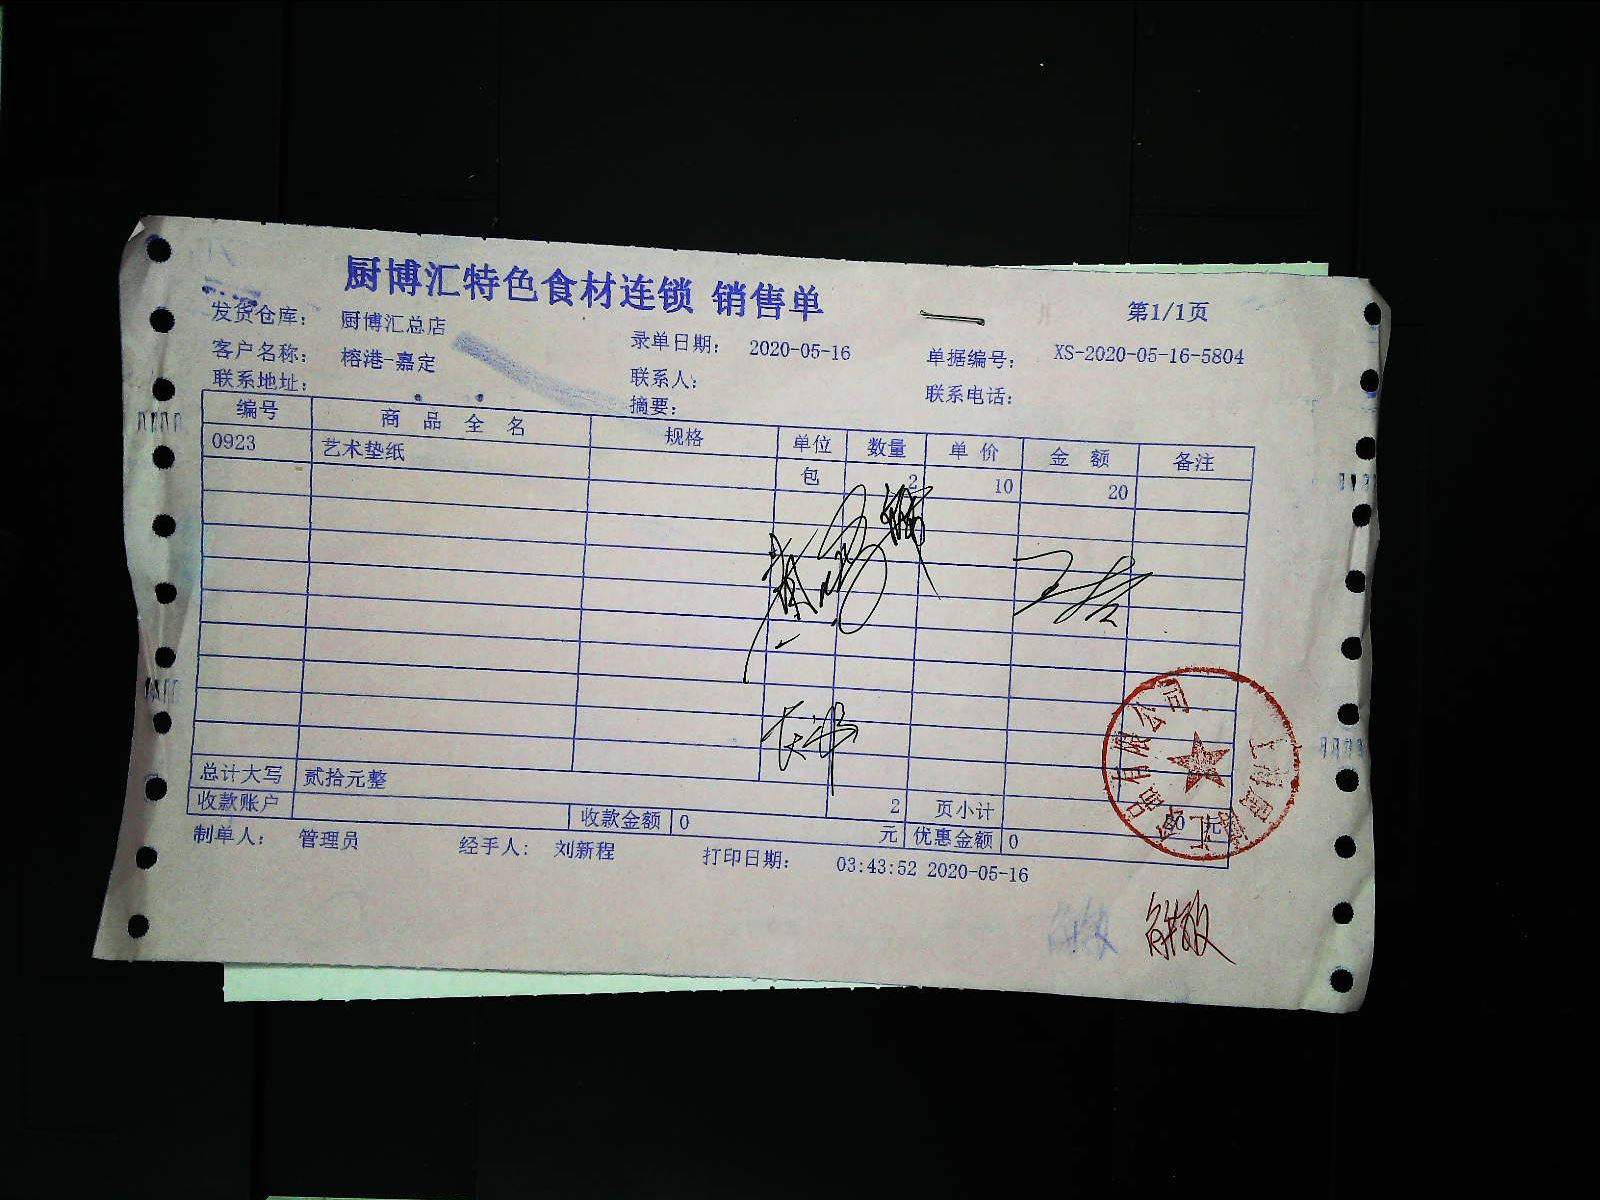 厨博汇特色食材连锁 销售单
第1/1页
发货仓库： 厨博汇总店 录单日期： 2020-05-16 单据编号： XS-2020-05-16-5804
客户名称： 榕港-嘉定 联系人： 联系电话：
联系地址： 摘要：
编号 商品全名 规格 单位 数量 单价 金额 备注
0923 艺术垫纸 包 2 10 20
总计大写 贰拾元整 2 页小计 元
收款账户 收款金额 0 元 优惠金额 0
制单人： 管理员 经手人： 刘新程 打印日期： 03:43:52 2020-05-16